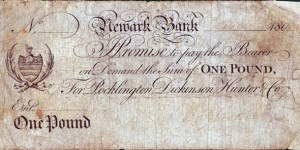 Newark Bank
No 180
I Promise to pay the Bearer
on Demand the Sum of ONE POUND,
For Pocklington Dickinson, Hunter & Co.
Entd.
One Pound